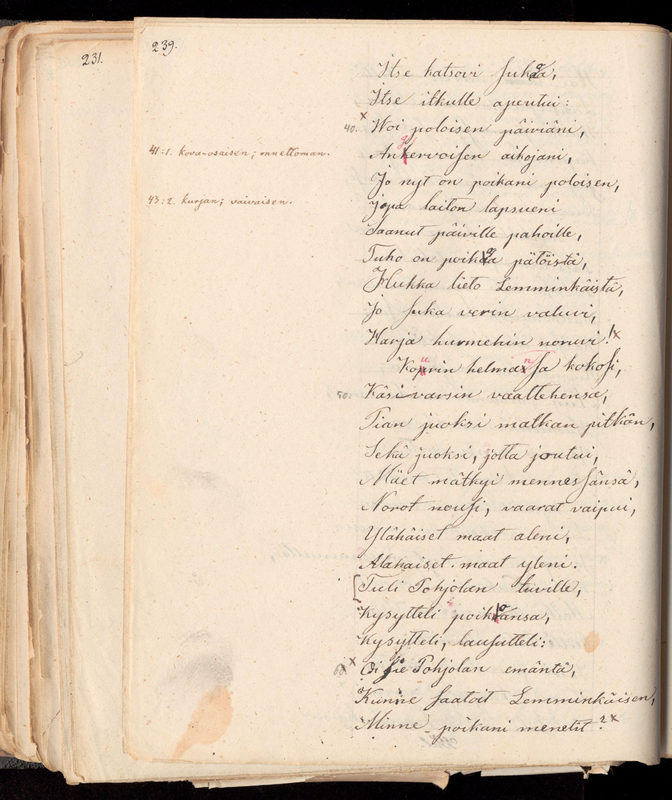 231.
239.
Itse katsovi sukoa,
Itse itkulle apeutui:
40. × Woi poloisen päiviäni,
41:1. kova-osaisen; onnettoman.
Angervoisen aikojani,
Jo nyt on poikani poloisen,
43:2. kurjan; vaivaisen.
jopa laiton lapsueni
Saanut päiville pahoille,
Tuho on poikoa pätöistä,
Hukka lieto Lemminkäistä,
Jo suka verin valuvi,
Harja hurmehin noruvi! ×
Kourin helmansa kokosi,
50. Käsivarsin vaattehensa,
Pian juoksi matkan pitkän,
Sekä juoksi, jotta joutui,
Mäet mätkyi mennessänsä,
Norot nousi, vaarat vaipui,
Ylähäiset maat aleni,
Alahaiset maat yleni.
[Tuli Pohjolan tuville,
Kysytteli poikoansa,
Kysytteli, lausutteli:
60 × Oi sie Pohjolan emäntä,
Kunne saatoit Lemminkäisen,
Minne poikani menetit? ×